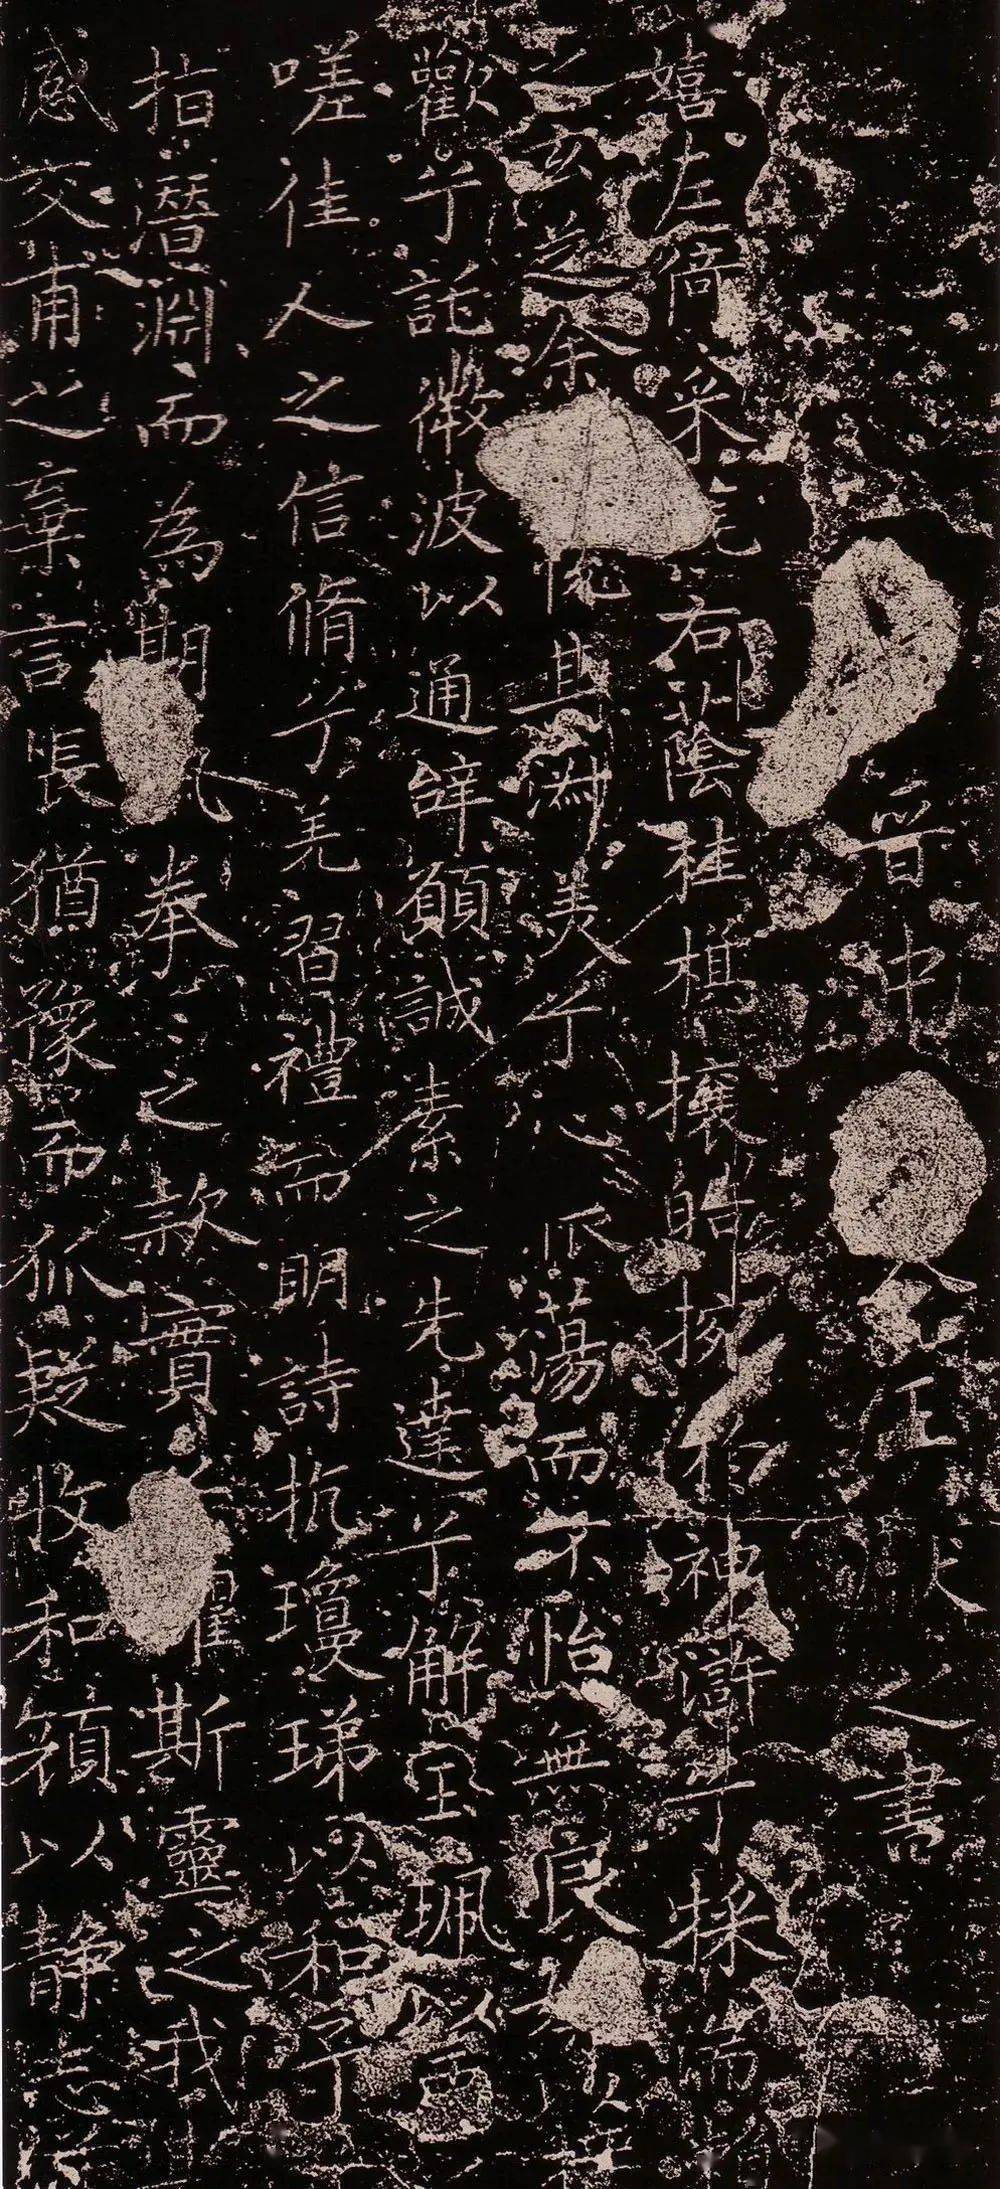 晉中令王之書
嬉左倚采旄右蔭桂旗攘皓捥於神滸兮採湍
之玄芝余悅其淑美兮心振蕩而不怡無良
歡兮託微波以通辭願誠素之先達兮解玉珮以要
嗟佳人之信脩兮羌習禮而明詩抗瓊珶以和予
指潛淵而為期執拳〻之款實兮懼斯靈之我
感交甫之棄言悵猶豫而狐疑收和顏以靜志